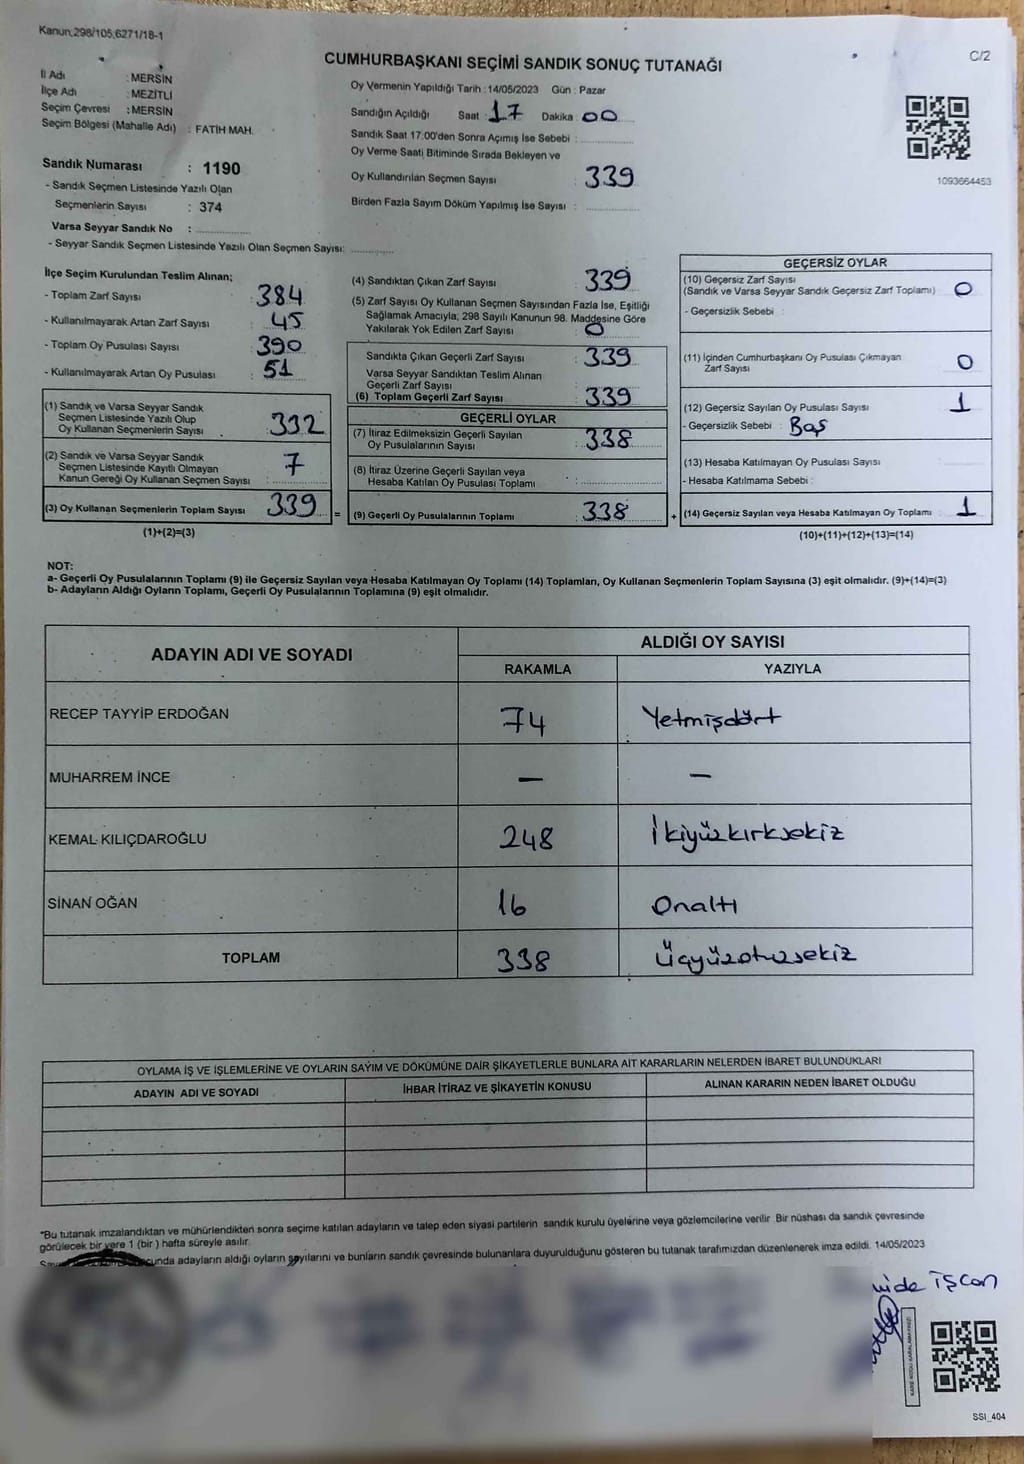 Kanun;298/105,6271/18-1
C/2
CUMHURBAŞKANI SEÇİMİ SANDIK SONUÇ TUTANAĞI
İl Adı : MERSİN
İlçe Adı : MEZİTLİ
Seçim Çevresi : MERSİN
Seçim Bölgesi (Mahalle Adı) : FATİH MAH.
Oy Vermenin Yapıldığı Tarih : 14/05/2023 Gün : Pazar
Sandığın Açıldığı Saat : 17 Dakika : 00
Sandık Saat 17:00'den Sonra Açımış İse Sebebi :
Oy Verme Saati Bitiminde Sırada Bekleyen ve
Oy Kullandırılan Seçmen Sayısı : 339
Birden Fazla Sayım Döküm Yapılmış İse Sayısı :
1093664453
Sandık Numarası : 1190
- Sandık Seçmen Listesinde Yazılı Olan
Seçmenlerin Sayısı : 374
Varsa Seyyar Sandık No :
- Seyyar Sandık Seçmen Listesinde Yazılı Olan Seçmen Sayısı:
İlçe Seçim Kurulundan Teslim Alınan;
- Toplam Zarf Sayısı : 384
- Kullanılmayarak Artan Zarf Sayısı : 45
- Toplam Oy Pusulası Sayısı : 390
- Kullanılmayarak Artan Oy Pusulası : 51
(1) Sandık ve Varsa Seyyar Sandık
Seçmen Listesinde Yazılı Olup
Oy Kullanan Seçmenlerin Sayısı : 332
(2) Sandık ve Varsa Seyyar Sandık
Seçmen Listesinde Kayıtlı Olmayan
Kanun Gereği Oy Kullanan Seçmen Sayısı : 7
(3) Oy Kullanan Seçmenlerin Toplam Sayısı 339 =
(1)+(2)=(3)
(4) Sandıktan Çıkan Zarf Sayısı : 339
(5) Zarf Sayısı Oy Kullanan Seçmen Sayısından Fazla İse, Eşitliği
Sağlamak Amacıyla; 298 Sayılı Kanunun 98. Maddesine Göre
Yakılarak Yok Edilen Zarf Sayısı : 0
Sandıkta Çıkan Geçerli Zarf Sayısı : 339
Varsa Seyyar Sandıktan Teslim Alınan
Geçerli Zarf Sayısı :
(6) Toplam Geçerli Zarf Sayısı : 339
GEÇERLİ OYLAR
(7) İtiraz Edilmeksizin Geçerli Sayılan
Oy Pusulalarının Sayısı : 338
(8) İtiraz Üzerine Geçerli Sayılan veya
Hesaba Katılan Oy Pusulası Toplamı :
(9) Geçerli Oy Pusulalarının Toplamı : 338 +
GEÇERSİZ OYLAR
(10) Geçersiz Zarf Sayısı
(Sandık ve Varsa Seyyar Sandık Geçersiz Zarf Toplamı) : 0
- Geçersizlik Sebebi :
(11) İçinden Cumhurbaşkanı Oy Pusulası Çıkmayan
Zarf Sayısı : 0
(12) Geçersiz Sayılan Oy Pusulası Sayısı : 1
- Geçersizlik Sebebi : Boş
(13) Hesaba Katılmayan Oy Pusulası Sayısı :
- Hesaba Katılmama Sebebi :
(14) Geçersiz Sayılan veya Hesaba Katılmayan Oy Toplamı : 1
(10)+(11)+(12)+(13)=(14)
NOT:
a- Geçerli Oy Pusulalarının Toplamı (9) ile Geçersiz Sayılan veya Hesaba Katılmayan Oy Toplamı (14) Toplamları, Oy Kullanan Seçmenlerin Toplam Sayısına (3) eşit olmalıdır. (9)+(14)=(3)
b- Adayların Aldığı Oyların Toplamı, Geçerli Oy Pusulalarının Toplamına (9) eşit olmalıdır.
ADAYIN ADI VE SOYADI ALDIĞI OY SAYISI
RAKAMLA YAZIYLA
RECEP TAYYİP ERDOĞAN 74 Yetmişdört
MUHARREM İNCE — —
KEMAL KILIÇDAROĞLU 248 İkiyüzkırksekiz
SİNAN OĞAN 16 Onaltı
TOPLAM 338 Üçyüzotuzsekiz
OYLAMA İŞ VE İŞLEMLERİNE VE OYLARIN SAYIM VE DÖKÜMÜNE DAİR ŞİKAYETLERLE BUNLARA AİT KARARLARIN NELERDEN İBARET BULUNDUKLARI
ADAYIN ADI VE SOYADI İHBAR İTİRAZ VE ŞİKAYETİN KONUSU ALINAN KARARIN NEDEN İBARET OLDUĞU
*Bu tutanak imzalandıktan ve mühürlendikten sonra seçime katılan adayların ve talep eden siyasi partilerin sandık kurulu üyelerine veya gözlemcilerine verilir. Bir nüshası da sandık çevresinde
görülecek bir yere 1 (bir) hafta süreyle asılır.
adayların aldığı oyların sayılarını ve bunların sandık çevresinde bulunanlara duyurulduğunu gösteren bu tutanak tarafımızdan düzenlenerek imza edildi. 14/05/2023
İşcan
SSI_404